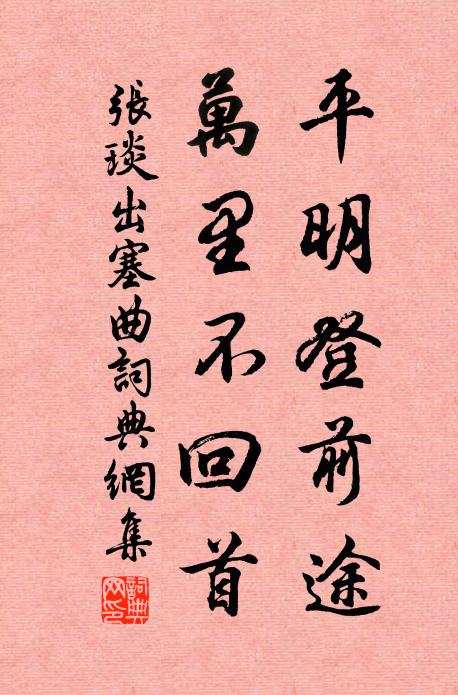 平明登前途
萬里不回首
張琰出塞曲詞典網集
詞典
网印